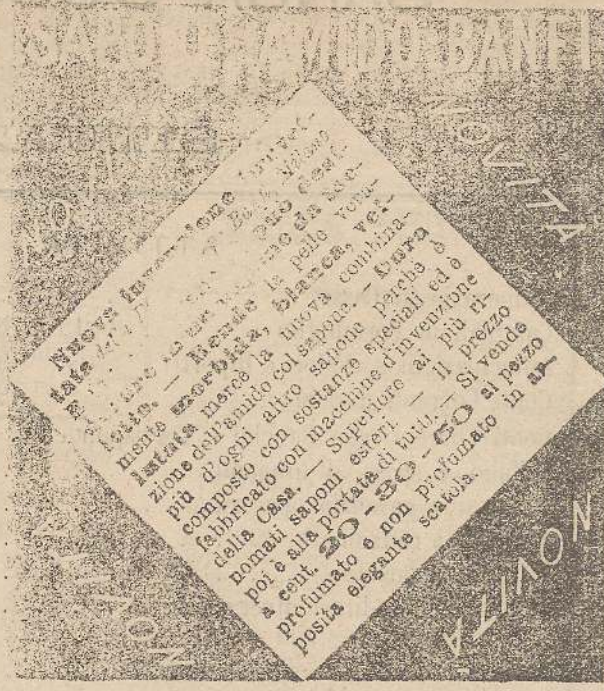 AMIDO BANFI
NOVITÀ
Nuova invenzione brevet-
tata della Milano
può
da
Rende la pelle vera-
mente morbida, bianca, vel-
lutata mercè la nuova combina-
zione dell'amido col sapone. — Dura
più d'ogni altro sapone perchè è
composto con sostanze speciali ed è
fabbricato con macchine d'invenzione
della Casa. — Superiore ai più ri-
nomati saponi esteri — il prezzo
poi è alla portata di tutti. — Si vende
a cent. 20-30-50 al pezzo
profumato e non profumato in ap-
posita elegante scatola.
NOVITÀ